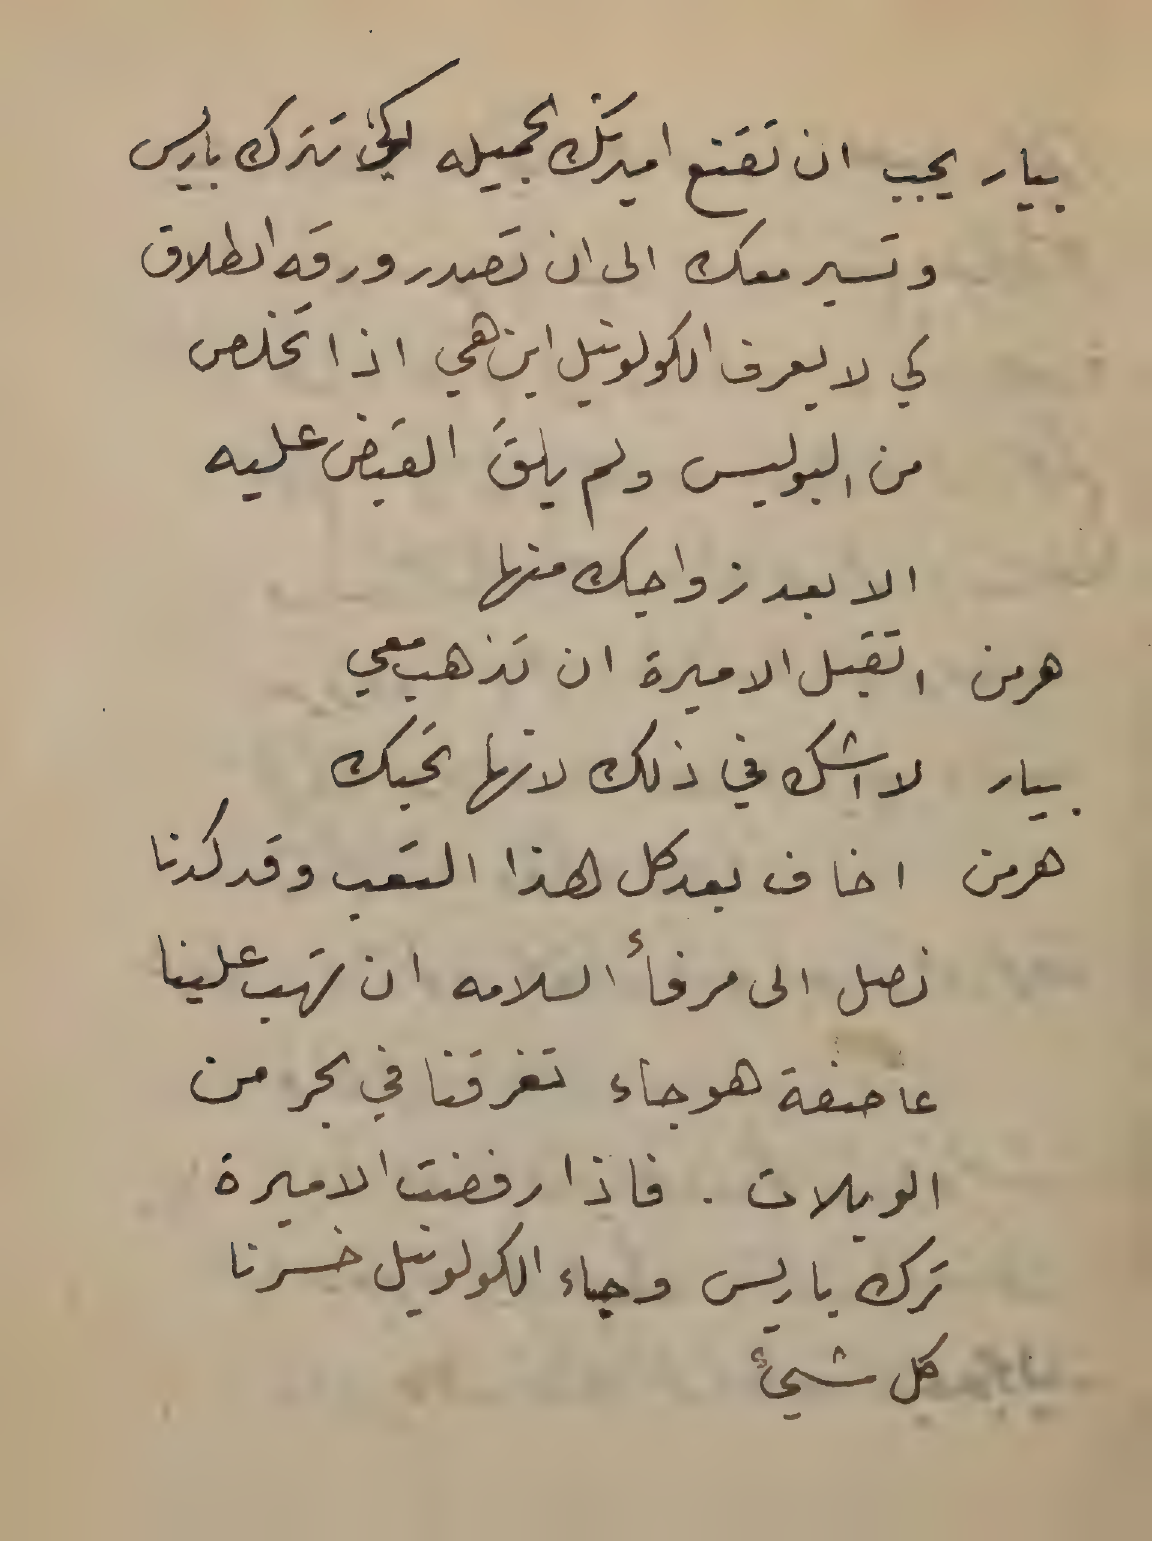 بيار يجب ان تقنع اميرتك الجميله لكي تترك باريس
وتسير معك الى ان تصدر ورقه الطلاق
كي لا يعرف الكولونيل اين هي اذا تخلص
من البوليس ولم يلقَ القبض عليه
الا بعد زواجك منها
هرمن اتقبل الاميرة ان تذهب معي
بيار لا اشك في ذلك لانها تحبك
هرمن اخاف بعد كل هذا التعب وقد كدنا
نصل الى مرفأ السلامه ان تهب علينا
عاصفة هوجاء تغرقنا في بحر من
الويلات . فاذا رفضت الاميرة
ترك باريس وجاء الكولونيل خسرنا
كل شيئ